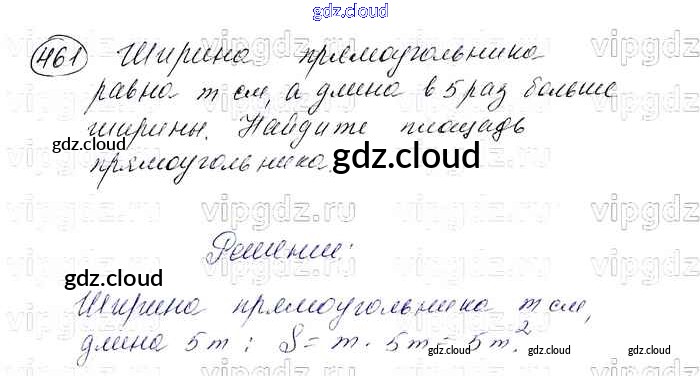 gdz.cloud
461 Ширина прямоугольника
равна m см, а длина в 5 раз больше
ширины. Найдите площадь
gdz.cloud gdz.cloud
прямоугольника.
vipgdz.ru vipgdz.ru vipgdz.ru
Решение:
gdz.cloud
Ширина прямоугольника m см,
длина 5m; S = m · 5m = 5m².
gdz.cloud gdz.cloud